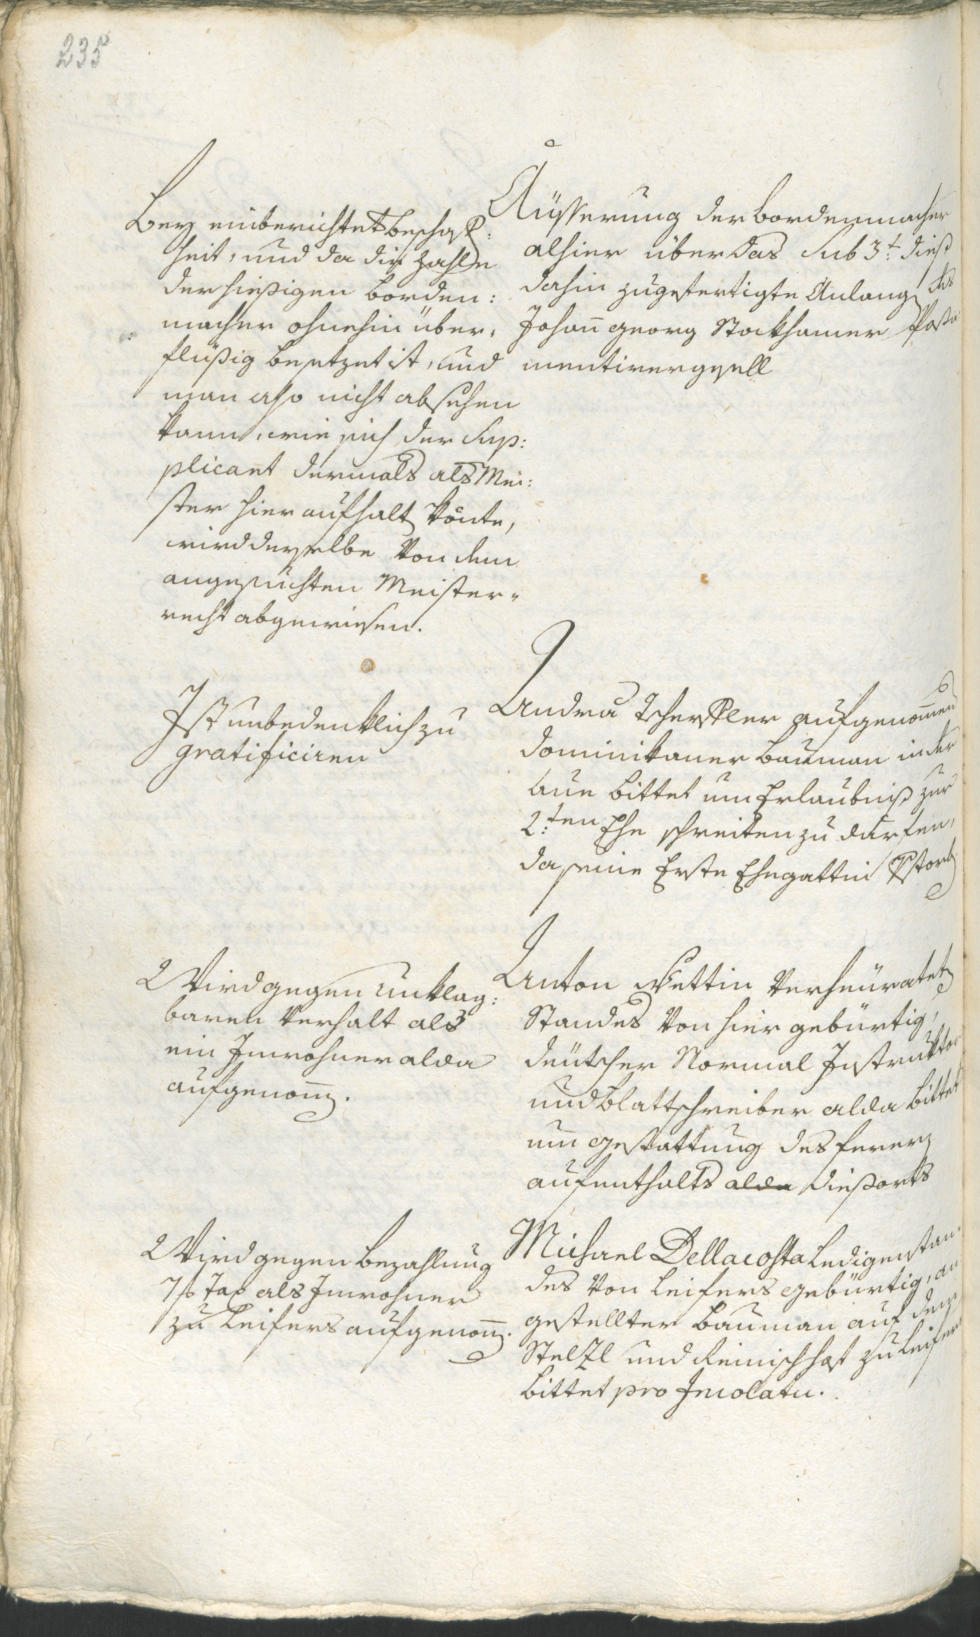 235
Bey einberichteter beschaf:
heit, und da die Zahl
der hießigen Borden:
macher ohnehin über,
flüßig besetzet ist, und
man also nicht absehen
kann, wie sich der Sup:
plicant dermals als Mei:
ster hier aufhalt könte,
wird derselbe von dem
angesuchten Meister=
recht abgewiesen.
Äüßerung der Bordenmacher
alhier über das sub 3t. dieß
dahin zugefertigte Anlang des
Johan̄ georg Stockhamer Possa
mentirergsell
Ist unbedenklich zu
gratificiren
Andrä Tscherkler aufgenom̄en
Dominikaner Bauman in der
Aue bittet um Erlaubniß zur
2:ten Ehe schreiten zu därfen,
da seine Erste Ehegattin
Wird gegen unklag:
baren Verhalt als
ein Inwohner alda
aufgenom̄.
Anton Vettin Verheüratet
Standes von hier gebürtig,
deütscher Normal Instruktor
und Blattschreiber alda bittet
um gestattung des ferer
aufenthalts alda dießorts
Wird gegen Bezahlung
7 f Tax als Inwohner
zu Leifers aufgenom̄.
Michael Dellacosta Ledigen stan:
des von Leifers gebürtig, an
gestellter Bauman auf dem
Stelzl und Reinischhof zu Leifers
bittet pro Incolatu.